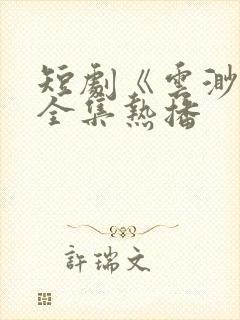 短劇《雲渺
全集熱播
許瑞文